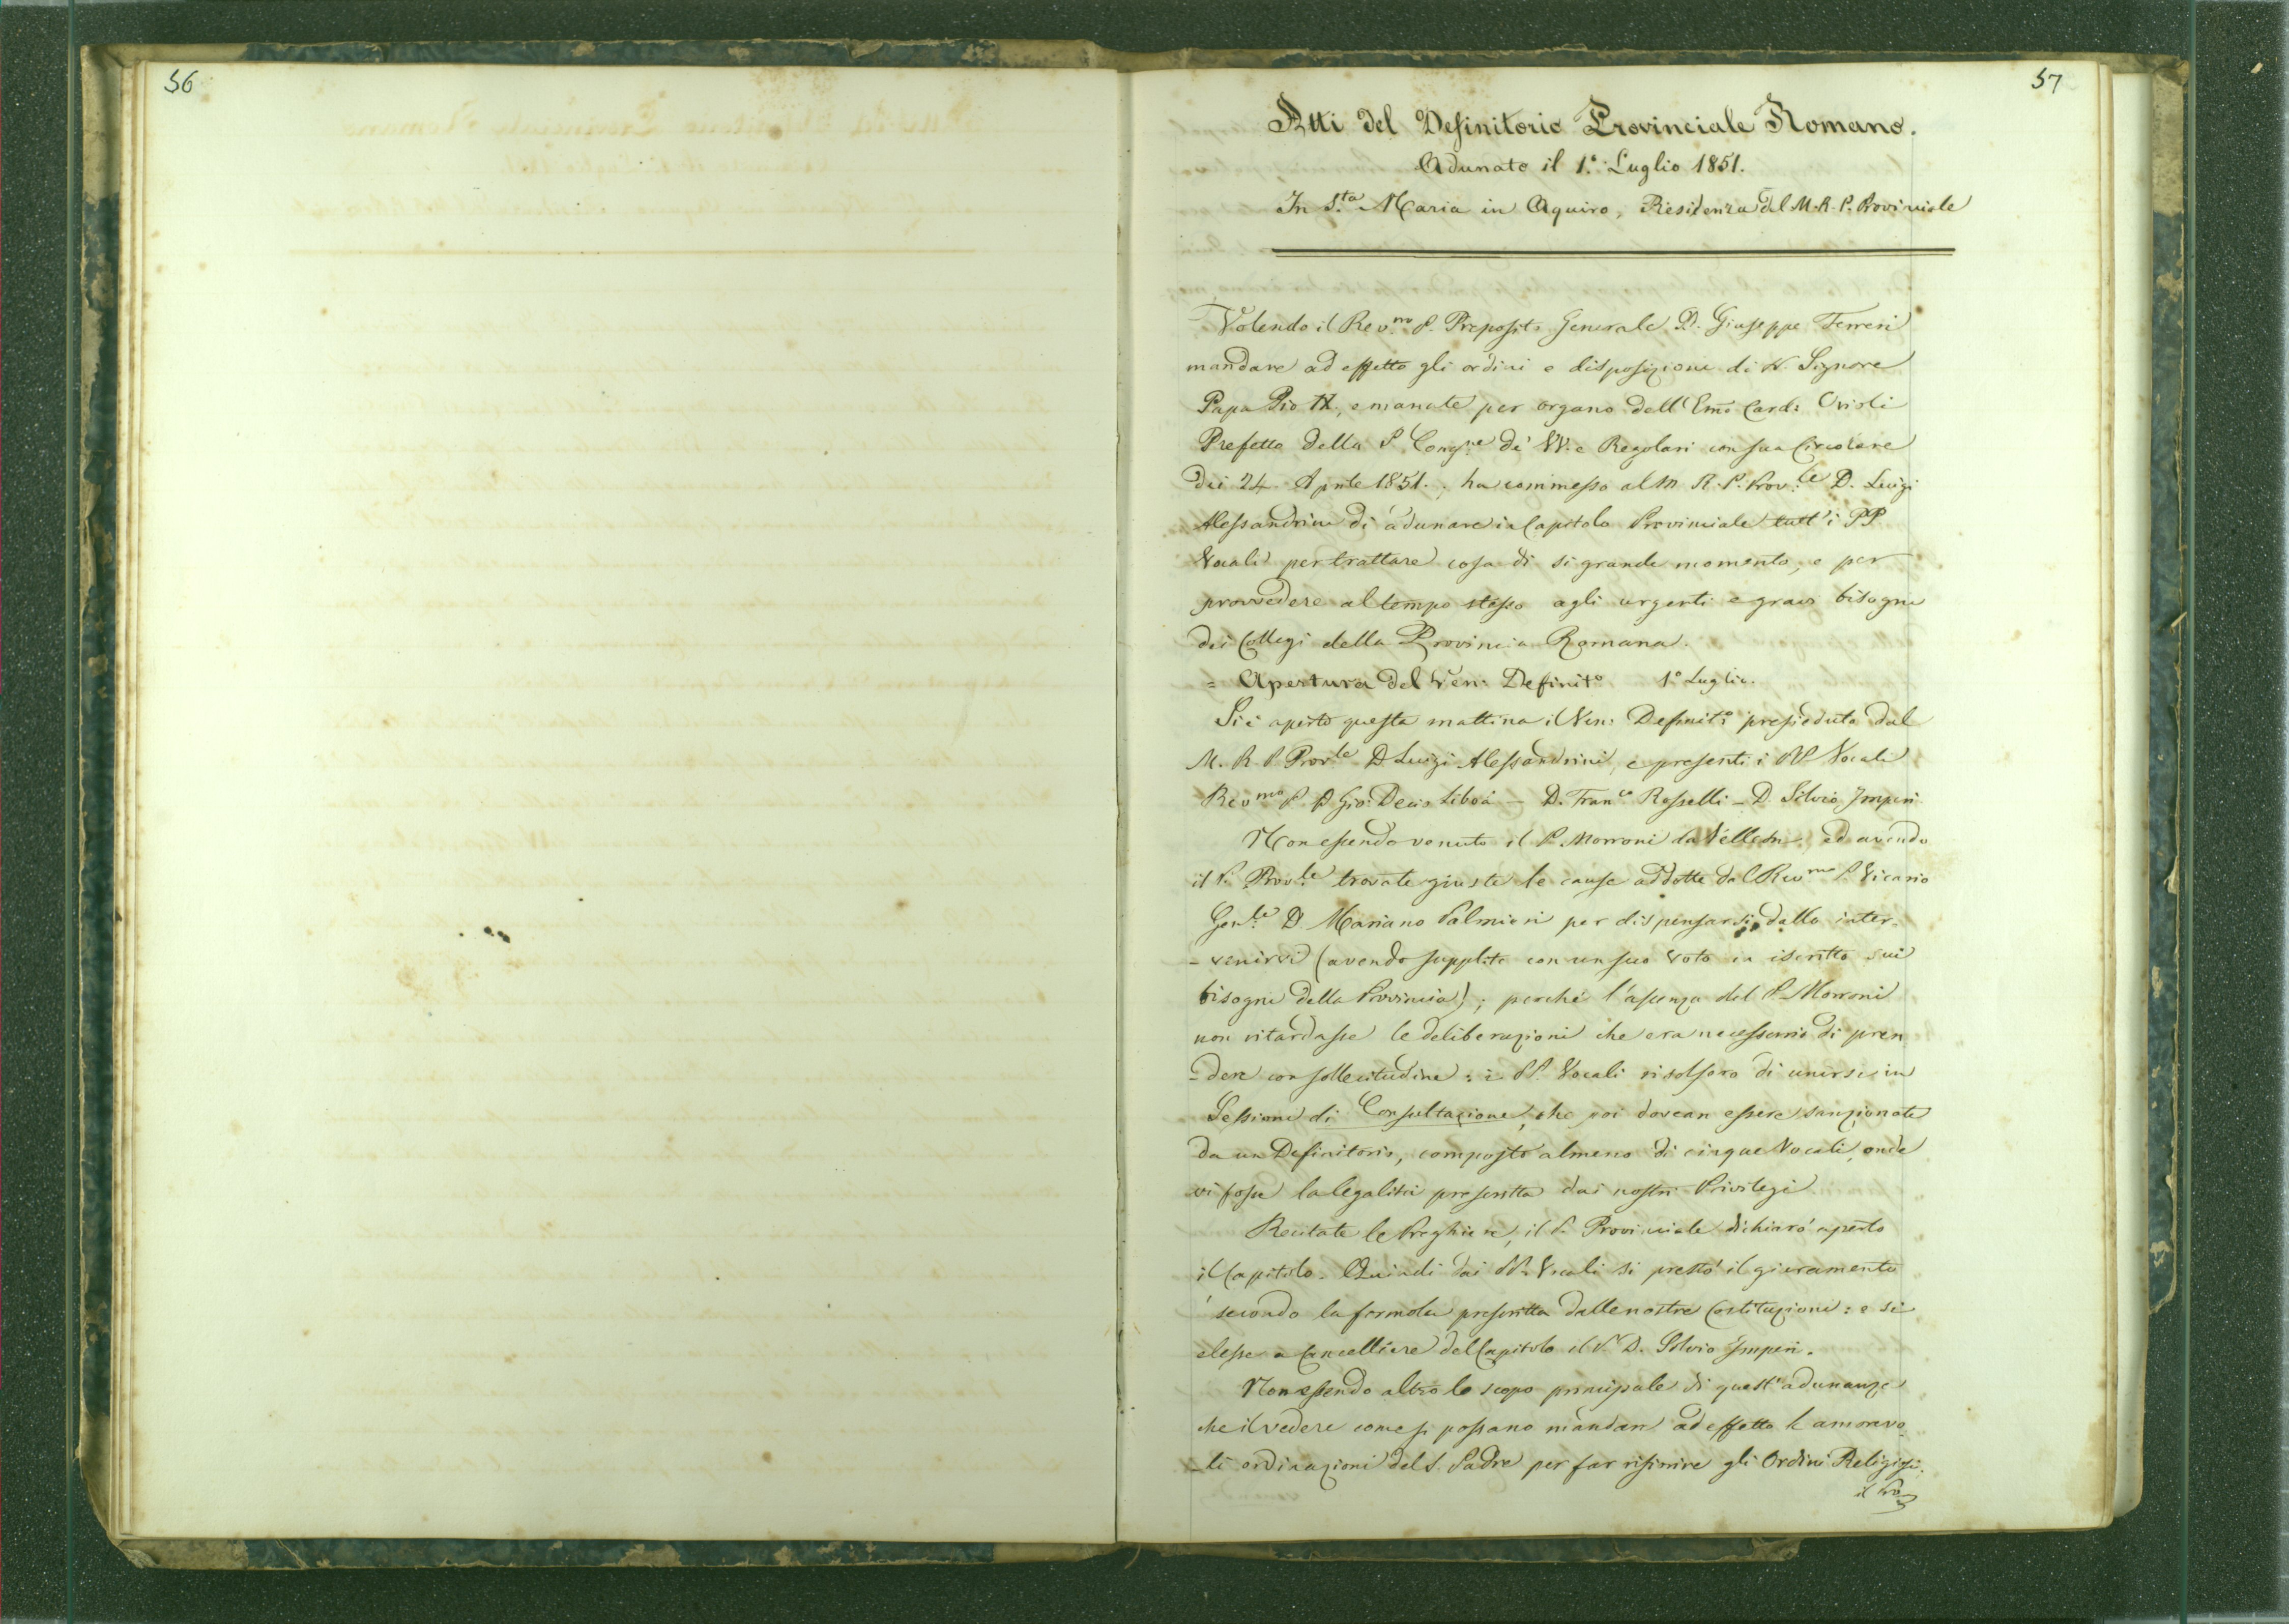 56
57
Atti del Definitorio Provinciale Romano.
Adunato il 1.° Luglio 1851.
In S.ta Maria in Aquiro, Residenza del M. R. P. Provinciale
Volendo il Rev.mo P. Preposito Generale D. Giuseppe Ferreri
mandare ad effetto gli ordini e disposizioni di N. Signore
Papa Pio IX, emanate per organo dell'Emo Card: Orioli
Prefetto della S. Cong.ne de' VV. e Regolari con sua Circolare
dei 24 Aprile 1851., ha commesso al M. R. P. Prov.le D. Luigi
Alessandrini di adunare in Capitolo Provinciale tutt'i PP
Vocali per trattare cosa di sì grande momento, e per
provvedere al tempo stesso agli urgenti e gravi bisogni
dei Collegi della Provincia Romana.
= Apertura del Ven: Definit.o 1.° Luglio.
Si è aperto questa mattina il Ven: Definit.o presieduto dal
M. R. P. Prov.le D. Luigi Alessandrini, e presenti i PP. Vocali
Rev.mo P. D. Gio: Decio Libois — D. Fran.co Rosselli — D. Silvio Imperi
Non essendo venuto il P. Morroni da Velletri, ed avendo
il P. Prov.le trovate giuste le cause addotte dal Rev.mo P. Vicario
Gen.le D. Mariano Palmieri per dispensarsi dallo inter-
-venirvi (avendo supplito con un suo voto in iscritto sui
bisogni della Provincia); perchè l'assenza del P. Morroni
non ritardasse le deliberazioni che era necessario di pren
-dere con sollecitudine: i PP. Vocali risolsero di unirsi in
Sessione di Consultazione, che poi dovean essere sanzionate
da un Definitorio, composto almeno di cinque Vocali, onde
vi fosse la legalità prescritta dai nostri Privilegi.
Recitate le Preghiere, il P. Provinciale dichiarò aperto
il Capitolo. Quindi dai PP. Vocali si prestò il giuramento
secondo la formola prescritta dalle nostre Costituzioni: e si
elesse a Cancelliere del Capitolo il P. D. Silvio Imperi.
Non essendo altro lo scopo principale di quest'adunanza
che il vedere come si possano mandare ad effetto le amorevo
-li ordinazioni del S. Padre per far rifiorire gli Ordini Religiosi,
il Pro